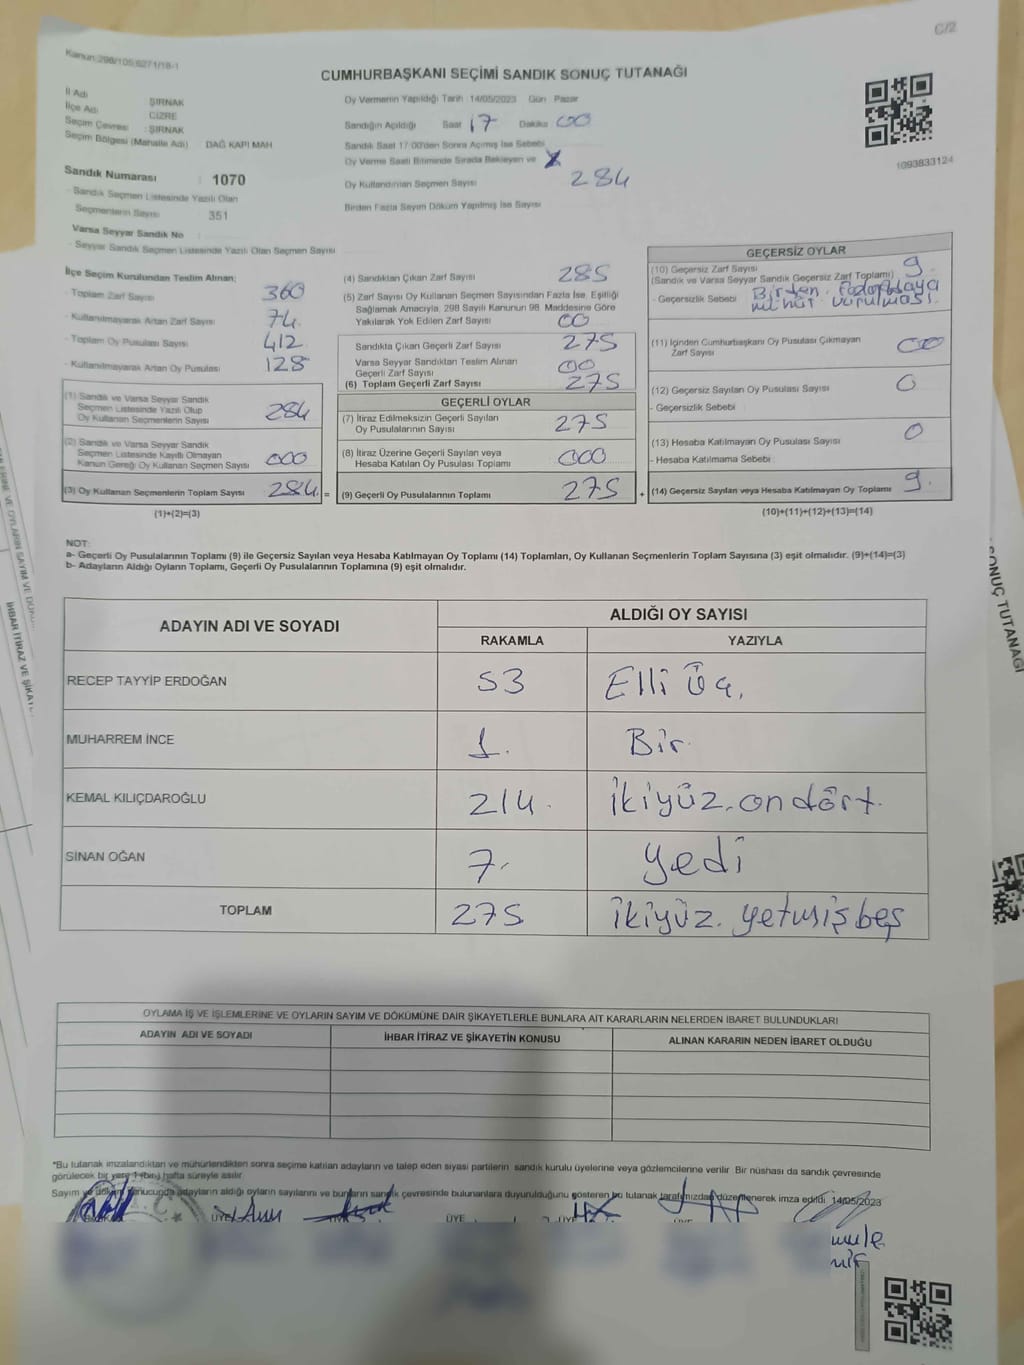 C/2
Kanun:298/105;6271/18-1
CUMHURBAŞKANI SEÇİMİ SANDIK SONUÇ TUTANAĞI
İl Adı ŞIRNAK
İlçe Adı CİZRE
Seçim Çevresi : ŞIRNAK
Seçim Bölgesi (Mahalle Adı) : DAĞ KAPI MAH
Sandık Numarası : 1070
- Sandık Seçmen Listesinde Yazılı Olan
Seçmenlerin Sayısı 351
Varsa Seyyar Sandık No
- Seyyar Sandık Seçmen Listesinde Yazılı Olan Seçmen Sayısı
Oy Vermenin Yapıldığı Tarih 14/05/2023 Gün Pazar
Sandığın Açıldığı Saat 17 Dakika 00
Sandık Saat 17:00'den Sonra Açılmış İse Sebebi
Oy Verme Saati Bitiminde Sırada Bekleyen ve X
Oy Kullandırılan Seçmen Sayısı 284
Birden Fazla Sayım Döküm Yapılmış İse Sayısı
1093833124
İlçe Seçim Kurulundan Teslim Alınan;
- Toplam Zarf Sayısı 360
- Kullanılmayarak Artan Zarf Sayısı 74
- Toplam Oy Pusulası Sayısı 412
- Kullanılmayarak Artan Oy Pusulası 128
(1) Sandık ve Varsa Seyyar Sandık
Seçmen Listesinde Yazılı Olup
Oy Kullanan Seçmenlerin Sayısı 284
(2) Sandık ve Varsa Seyyar Sandık
Seçmen Listesinde Kayıtlı Olmayan
Kanun Gereği Oy Kullanan Seçmen Sayısı 000
(3) Oy Kullanan Seçmenlerin Toplam Sayısı 284. =
(1)+(2)=(3)
(4) Sandıktan Çıkan Zarf Sayısı 285
(5) Zarf Sayısı Oy Kullanan Seçmen Sayısından Fazla İse, Eşitliği
Sağlamak Amacıyla, 298 Sayılı Kanunun 98. Maddesine Göre
Yakılarak Yok Edilen Zarf Sayısı 00
Sandıkta Çıkan Geçerli Zarf Sayısı 275
Varsa Seyyar Sandıktan Teslim Alınan
Geçerli Zarf Sayısı 00
(6) Toplam Geçerli Zarf Sayısı 275
GEÇERLİ OYLAR
(7) İtiraz Edilmeksizin Geçerli Sayılan
Oy Pusulalarının Sayısı 275
(8) İtiraz Üzerine Geçerli Sayılan veya
Hesaba Katılan Oy Pusulası Toplamı 000
(9) Geçerli Oy Pusulalarının Toplamı 275 +
GEÇERSİZ OYLAR
(10) Geçersiz Zarf Sayısı 9.
(Sandık ve Varsa Seyyar Sandık Geçersiz Zarf Toplamı)
- Geçersizlik Sebebi Birden
mühür vurulması.
(11) İçinden Cumhurbaşkanı Oy Pusulası Çıkmayan
Zarf Sayısı 00
(12) Geçersiz Sayılan Oy Pusulası Sayısı 0
- Geçersizlik Sebebi
(13) Hesaba Katılmayan Oy Pusulası Sayısı 0
- Hesaba Katılmama Sebebi
(14) Geçersiz Sayılan veya Hesaba Katılmayan Oy Toplamı 9.
(10)+(11)+(12)+(13)=(14)
NOT:
a- Geçerli Oy Pusulalarının Toplamı (9) ile Geçersiz Sayılan veya Hesaba Katılmayan Oy Toplamı (14) Toplamları, Oy Kullanan Seçmenlerin Toplam Sayısına (3) eşit olmalıdır. (9)+(14)=(3)
b- Adayların Aldığı Oyların Toplamı, Geçerli Oy Pusulalarının Toplamına (9) eşit olmalıdır.
ADAYIN ADI VE SOYADI ALDIĞI OY SAYISI
RAKAMLA YAZIYLA
RECEP TAYYİP ERDOĞAN 53 Elli Üç.
MUHARREM İNCE 1. Bir.
KEMAL KILIÇDAROĞLU 214. ikiyüz.on dört.
SİNAN OĞAN 7. yedi
TOPLAM 275 ikiyüz. yetmişbeş
OYLAMA İŞ VE İŞLEMLERİNE VE OYLARIN SAYIM VE DÖKÜMÜNE DAİR ŞİKAYETLERLE BUNLARA AİT KARARLARIN NELERDEN İBARET BULUNDUKLARI
ADAYIN ADI VE SOYADI İHBAR İTİRAZ VE ŞİKAYETİN KONUSU ALINAN KARARIN NEDEN İBARET OLDUĞU
*Bu tutanak imzalandıktan ve mühürlendikten sonra seçime katılan adayların ve talep eden siyasi partilerin sandık kurulu üyelerine veya gözlemcilerine verilir. Bir nüshası da sandık çevresinde
görülecek bir yere 1 (bir) hafta süreyle asılır.
Sayım ve döküm sonucunda adayların aldığı oyların sayılarını ve bunların sandık çevresinde bulunanlara duyurulduğunu gösteren bo tutanak tarafımızdan düzenlenerek imza edildi. 14/05/2023
ÜYE ÜYE ÜYE
SONUÇ TUTANAĞI
İHBAR İTİRAZ VE ŞİKAY